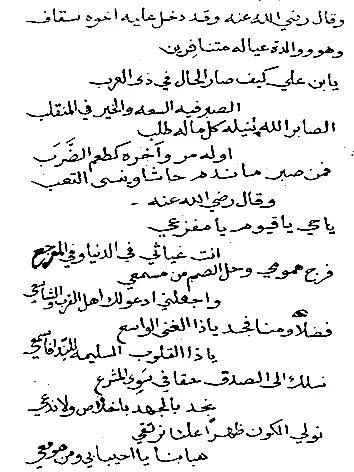 وقال رضي الله عنه وقد دخل عليه اخوه سقاف
وهو ووالدة عياله متنافرين
يا بن علي كيف صار الحال في ذى العرب
الصبر فيه السعه والخير في المنقلب
الصابر الله ينيله كل ماله طلب
اوله مر وآخره كطعم الضَّرَب
فمن صبر ما ندم حاشا وينسى التعب
وقال رضي الله عنه -
يا حي يا قيوم يا مفزعي
انت غياثي في الدنيا وفي المرجع
فرج همومي وحل الصم من مسمعي
واجعلني ادعو لك اهل القرب
فضلاً ومنا فجد يا ذا الغنى الواسع
يا ذا القلوب السليمه
نسلك الى الصدق حقا في سَوِي المشرع
بجد بالجهد باخلاص ولا ندعي
نولي الكون ظهراً علنا نرتقي
هيا بنا يا احبابي ومن هو معي